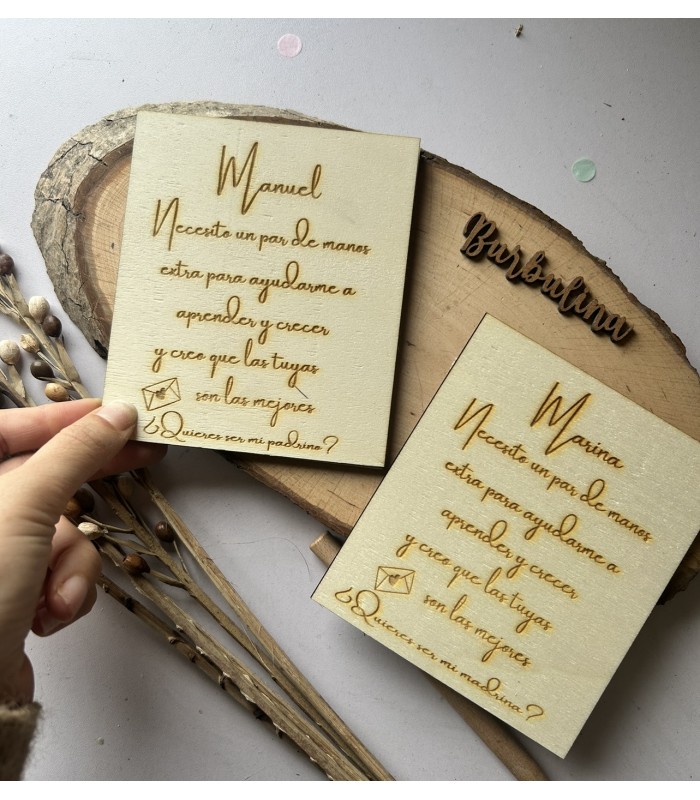 Manuel
Necesito un par de manos
extra para ayudarme a
aprender y crecer
y creo que las tuyas
son las mejores
¿Quieres ser mi padrino?
Burbulina
Marina
Necesito un par de manos
extra para ayudarme a
aprender y crecer
y creo que las tuyas
son las mejores
¿Quieres ser mi madrina?